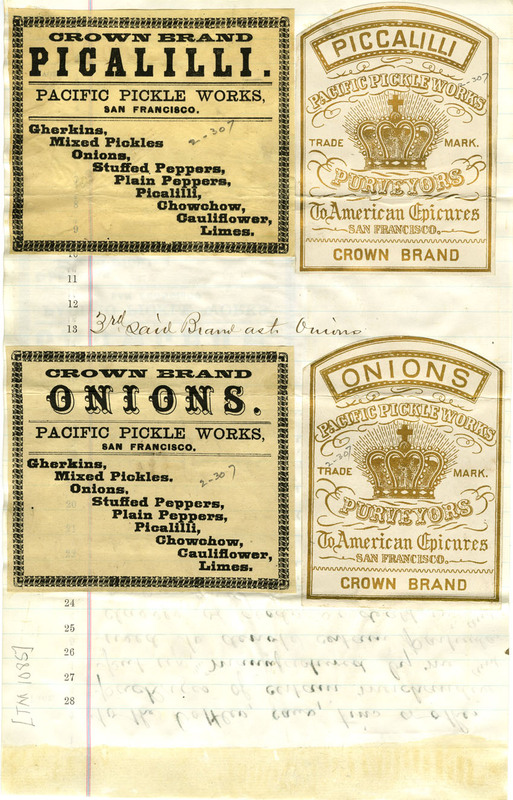 CROWN BRAND
PICALILLI.
PACIFIC PICKLE WORKS,
SAN FRANCISCO.
2-307
Gherkins,
Mixed Pickles
Onions,
Stuffed Peppers,
Plain Peppers,
Picalilli,
Chowchow,
Cauliflower,
Limes.
PICCALILLI
2-307
PACIFIC PICKLE WORKS
TRADE MARK.
PURVEYORS
To American Epicures
SAN FRANCISCO.
CROWN BRAND
10
11
12
13 3rd Said Brand as to Onions
CROWN BRAND
ONIONS.
PACIFIC PICKLE WORKS,
SAN FRANCISCO.
Gherkins,
2-307
Mixed Pickles.
Onions,
Stuffed Peppers,
Plain Peppers,
Picalilli,
Chowchow,
Cauliflower,
Limes.
ONIONS
PACIFIC PICKLE WORKS
2-307
TRADE MARK.
PURVEYORS
To American Epicures
SAN FRANCISCO.
CROWN BRAND
24
25
26
27
28
[TM 1085]